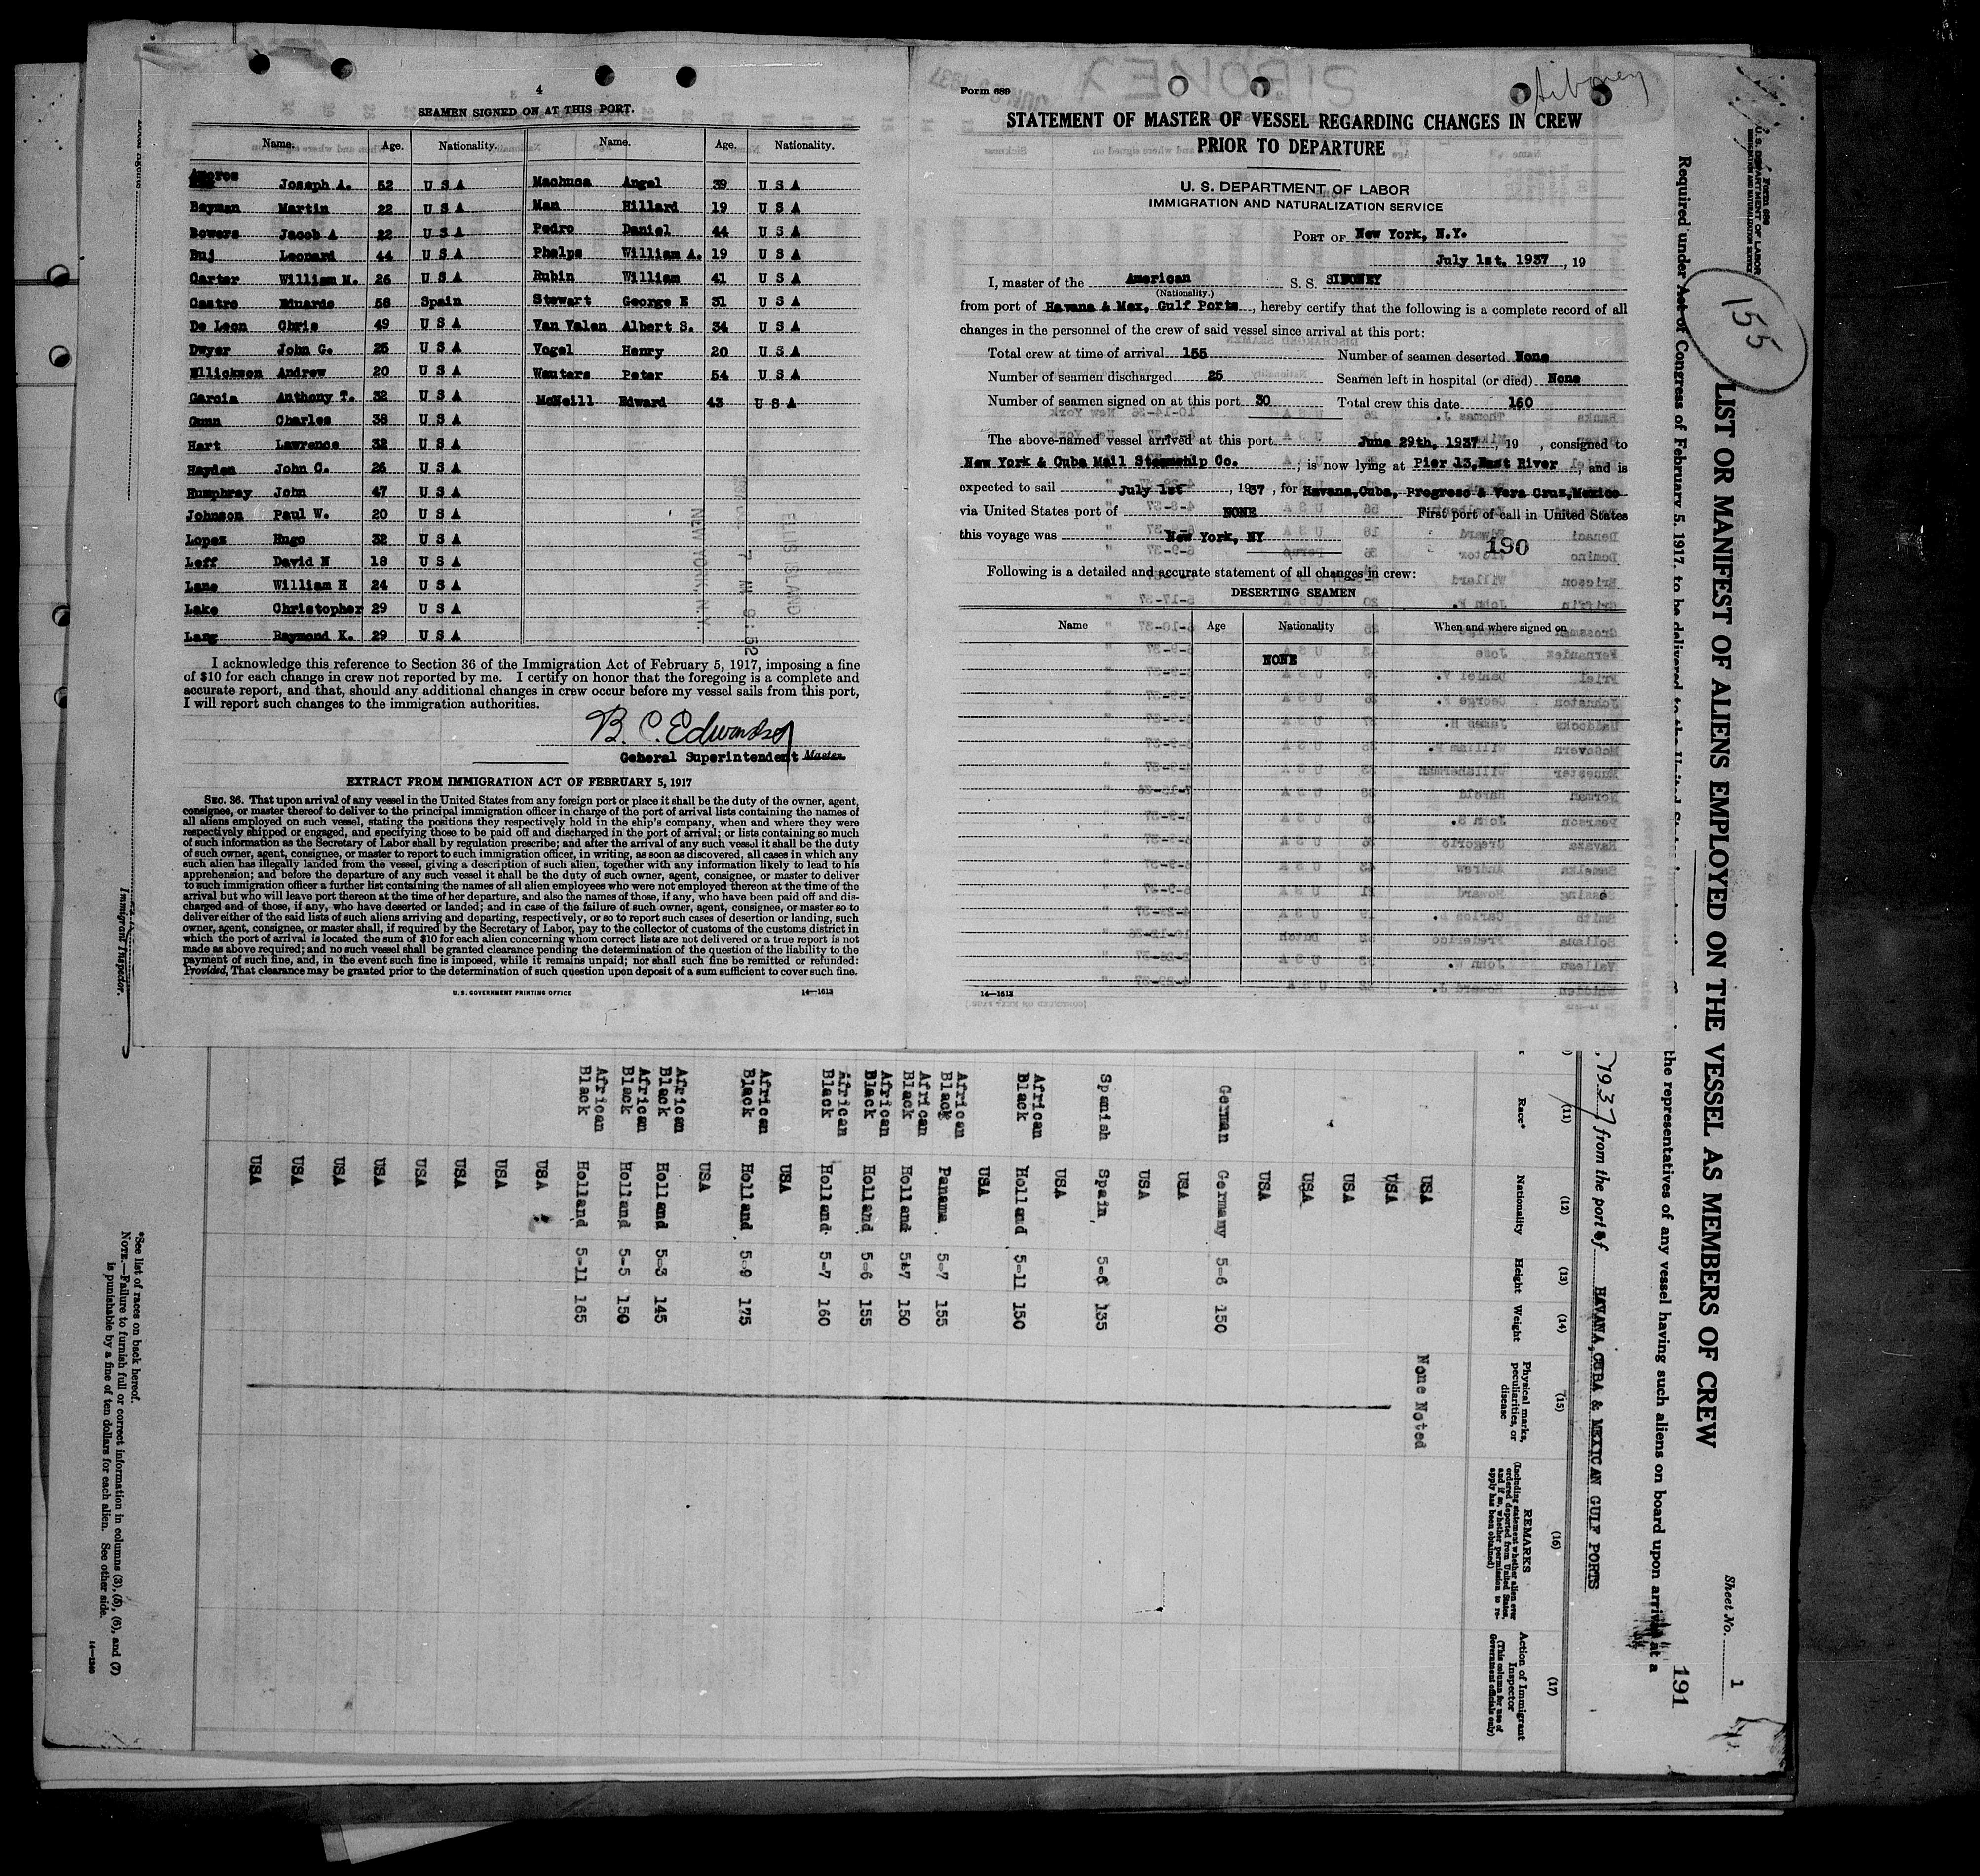 4
SEAMEN SIGNED ON AT THIS PORT.
Name. Age. Nationality. Name. Age. Nationality.
Amoros Joseph A. 52 U S A Machuca Angel 39 U S A
Bayman Martin 22 U S A Man Hillard 19 U S A
Bowers Jacob A 22 U S A Pedro Daniel 44 U S A
Buj Leonard 44 U S A Phelps William A. 19 U S A
Carter William M. 26 U S A Rubin William 41 U S A
Castro Eduardo 58 Spain Stewart George E 31 U S A
De Leon Chris 49 U S A Van Valen Albert S. 34 U S A
Dwyer John G. 25 U S A Vogel Henry 20 U S A
Ellickson Andrew 20 U S A Wauters Peter 54 U S A
Garcia Anthony T. 32 U S A McNeill Edward 43 U S A
Gunn Charles 38 U S A
Hart Lawrence 32 U S A
Hayden John C. 26 U S A
Humphrey John 47 U S A
Johnson Paul W. 20 U S A
Lopez Hugo 32 U S A
Leff David N 18 U S A
Lane William H 24 U S A
Lake Christopher 29 U S A
Lang Raymond K. 29 U S A
ELLIS ISLAND
NEW YORK, N.Y.
I acknowledge this reference to Section 36 of the Immigration Act of February 5, 1917, imposing a fine
of $10 for each change in crew not reported by me. I certify on honor that the foregoing is a complete and
accurate report, and that, should any additional changes in crew occur before my vessel sails from this port,
I will report such changes to the immigration authorities.
B. C. Edwards
General Superintendent Master.
EXTRACT FROM IMMIGRATION ACT OF FEBRUARY 5, 1917
SEC. 36. That upon arrival of any vessel in the United States from any foreign port or place it shall be the duty of the owner, agent,
consignee, or master thereof to deliver to the principal immigration officer in charge of the port of arrival lists containing the names of
all aliens employed on such vessel, stating the positions they respectively hold in the ship's company, when and where they were
respectively shipped or engaged, and specifying those to be paid off and discharged in the port of arrival; or lists containing so much
of such information as the Secretary of Labor shall by regulation prescribe; and after the arrival of any such vessel it shall be the duty
of such owner, agent, consignee, or master to report to such immigration officer, in writing, as soon as discovered, all cases in which any
such alien has illegally landed from the vessel, giving a description of such alien, together with any information likely to lead to his
apprehension; and before the departure of any such vessel it shall be the duty of such owner, agent, consignee, or master to deliver
to such immigration officer a further list containing the names of all alien employees who were not employed thereon at the time of the
arrival but who will leave port thereon at the time of her departure, and also the names of those, if any, who have been paid off and dis-
charged and of those, if any, who have deserted or landed; and in case of the failure of such owner, agent, consignee, or master so to
deliver either of the said lists of such aliens arriving and departing, respectively, or so to report such cases of desertion or landing, such
owner, agent, consignee, or master shall, if required by the Secretary of Labor, pay to the collector of customs of the customs district in
which the port of arrival is located the sum of $10 for each alien concerning whom correct lists are not delivered or a true report is not
made as above required; and no such vessel shall be granted clearance pending the determination of the question of the liability to the
payment of such fine, and, in the event such fine is imposed, while it remains unpaid; nor shall such fine be remitted or refunded:
Provided, That clearance may be granted prior to the determination of such question upon deposit of a sum sufficient to cover such fine.
U. S. GOVERNMENT PRINTING OFFICE 14—1613
Form 689
Siboney
STATEMENT OF MASTER OF VESSEL REGARDING CHANGES IN CREW
PRIOR TO DEPARTURE
U. S. DEPARTMENT OF LABOR
IMMIGRATION AND NATURALIZATION SERVICE
PORT OF New York, N.Y.
July 1st, 1937, 19
I, master of the American S. S. SIBONEY
(Nationality.)
from port of Havana & Mex, Gulf Ports, hereby certify that the following is a complete record of all
changes in the personnel of the crew of said vessel since arrival at this port:
Total crew at time of arrival 155 Number of seamen deserted None
Number of seamen discharged 25 Seamen left in hospital (or died) None
Number of seamen signed on at this port 30 Total crew this date 160
The above-named vessel arrived at this port June 29th, 1937, 19 , consigned to
New York & Cuba Mail Steamship Co. ; is now lying at Pier 13, East River, and is
expected to sail July 1st, 1937, for Havana, Cuba, Progreso & Vera Cruz, Mexico
via United States port of NONE First port of call in United States
this voyage was New York, NY
190
Following is a detailed and accurate statement of all changes in crew:
DESERTING SEAMEN
Name Age Nationality When and where signed on
NONE
14—1613
Form 689
U. S. DEPARTMENT OF LABOR
IMMIGRATION AND NATURALIZATION SERVICE
155
Sheet No. 1
191
LIST OR MANIFEST OF ALIENS EMPLOYED ON THE VESSEL AS MEMBERS OF CREW
Required under Act of Congress of February 5, 1917, to be delivered to the United States
the representatives of any vessel having such aliens on board upon arrival at a
, 1937 from the port of HAVANA, CUBA & MEXICAN GULF PORTS
(11) (12) (13) (14) (15) (16) (17)
Race* Nationality Height Weight Physical marks, peculiarities, or disease
REMARKS (Including statement whether alien ever ordered deported from United States, and if so, whether permission to reapply has been obtained)
Action of Immigrant Inspector (This column for use of Government officials only)
USA None Noted
USA
USA
USA
USA
German Germany 5-6 150
USA
USA
Spanish Spain 5-6 135
USA
African Black Holland 5-11 150
USA
African Black Panama 5-7 155
African Black Holland 5-7 150
African Black Holland 5-6 155
African Black Holland 5-7 160
USA
African Black Holland 5-9 175
USA
African Black Holland 5-3 145
African Black Holland 5-5 150
African Black Holland 5-11 165
USA
USA
USA
USA
USA
USA
USA
USA
*See list of races on back hereof.
NOTE.—Failure to furnish full or correct information in columns (3), (5), (6), and (7)
is punishable by a fine of ten dollars for each alien. See other side.
14—1240
Immigrant Inspector.